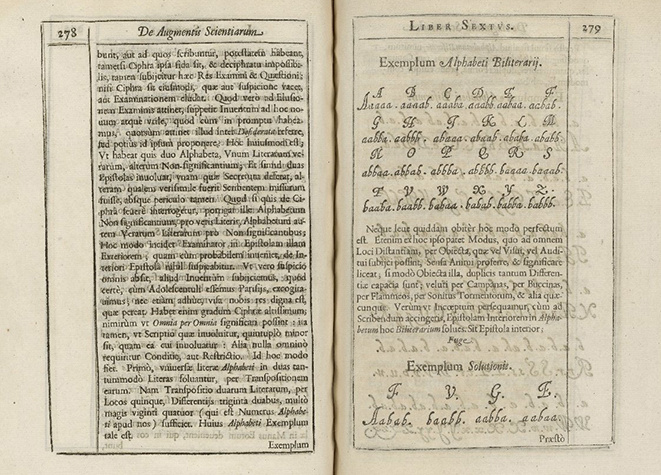 278 De Augmentis Scientiarum
burit, aut ad quos scribuntur, potestatem habeant,
tametsi Ciphra ipsa fida sit, & deciphratu impossibi-
lis, tamen subijcitur hæc Res Examini & Quæstioni;
nisi Ciphra sit eiusmodi, quæ aut suspicione vacet,
aut Examinationem eludat. Quod vero ad Elusio-
nem Examinis attinet, suppetit Inuentum ad hoc no-
uum atque vtile, quod cum in promptu habea-
mus, quorsum attinet illud inter Desiderata referre,
sed potius id ipsum proponere? Hoc huiusmodi est;
Vt habeat quis duo Alphabeta, Vnum Literarum ve-
rarum, alterum Non-significantium; Et simul duas
Epistolas inuoluat, vnam quæ Secretum deferat, al-
teram qualem verisimile fuerit Scribentem missurum
fuisse, absque periculo tamen. Quod si quis de Ci-
phra seuere interrogetur, porrigat ille Alphabetum
Non significantium, pro veris Literis, Alphabetum au-
tem Verarum Literarum pro Non significantibus;
Hoc modo incidet Examinator in Epistolam illam
Exteriorem; quam cum probabilem inueniet, de In-
teriori Epistola nihil suspicabitur. Vt vero suspicio
omnis absit, aliud Inuentum subijciemus, quod
certè, cùm Adolescentuli essemus Parisijs, excogita-
uimus; nec etiam adhuc visa nobis res digna est,
quæ pereat. Habet enim gradum Ciphræ altissimum;
nimirum vt Omnia per Omnia significari possint: ita
tamen, vt Scriptio quæ inuoluitur, quintuplo minor
sit, quam ea cui inuoluatur: Alia nulla omnino
requiritur Conditio, aut Restrictio. Id hoc modo
fiet. Primò, vniuersæ literæ Alphabeti in duas tan-
tummodo Literas soluantur, per Transpositionem
earum. Nam Transpositio duarum Literarum, per
Locos quinque, Differentijs triginta duabus, multò
magis viginti quatuor (qui est Numerus Alphabe-
ti apud nos) sufficiet. Huius Alphabeti Exemplum
tale est.
Exemplum
LIBER SEXTVS. 279
Exemplum Alphabeti Biliterarij.
A B C D E F
Aaaaa. aaaab. aaaba. aaabb. aabaa. aabab.
G H I K L M
aabba. aabbb. abaaa. abaab. ababa. ababb.
N O P Q R S
abbaa. abbab. abbba. abbbb. baaaa. baaab.
T V W X Y Z
baaba. baabb. babaa. babab. babba. babbb.
Neque leue quiddam obiter hoc modo perfectum
est. Etenim ex hoc ipso patet Modus, quo ad omnem
Loci Distantiam, per Obiecta, quæ vel Visui, vel Audi-
tui subijci possint, Sensa Animi proferre, & significare
liceat; si modò Obiecta illa, duplicis tantum Differen-
tiæ capacia sunt; veluti per Campanas, per Buccinas,
per Flammeos, per Sonitus Tormentorum, & alia quæ-
cunque. Verùm vt Inceptum persequamur, cùm ad
Scribendum accingeris, Epistolam Interiorem in Alpha-
betum hoc Biliterarium solues. Sit Epistola interior;
Fuge.
Exemplum Solutionis.
F. V. G. E.
Aabab. baabb. aabba. aabaa.
Præstò